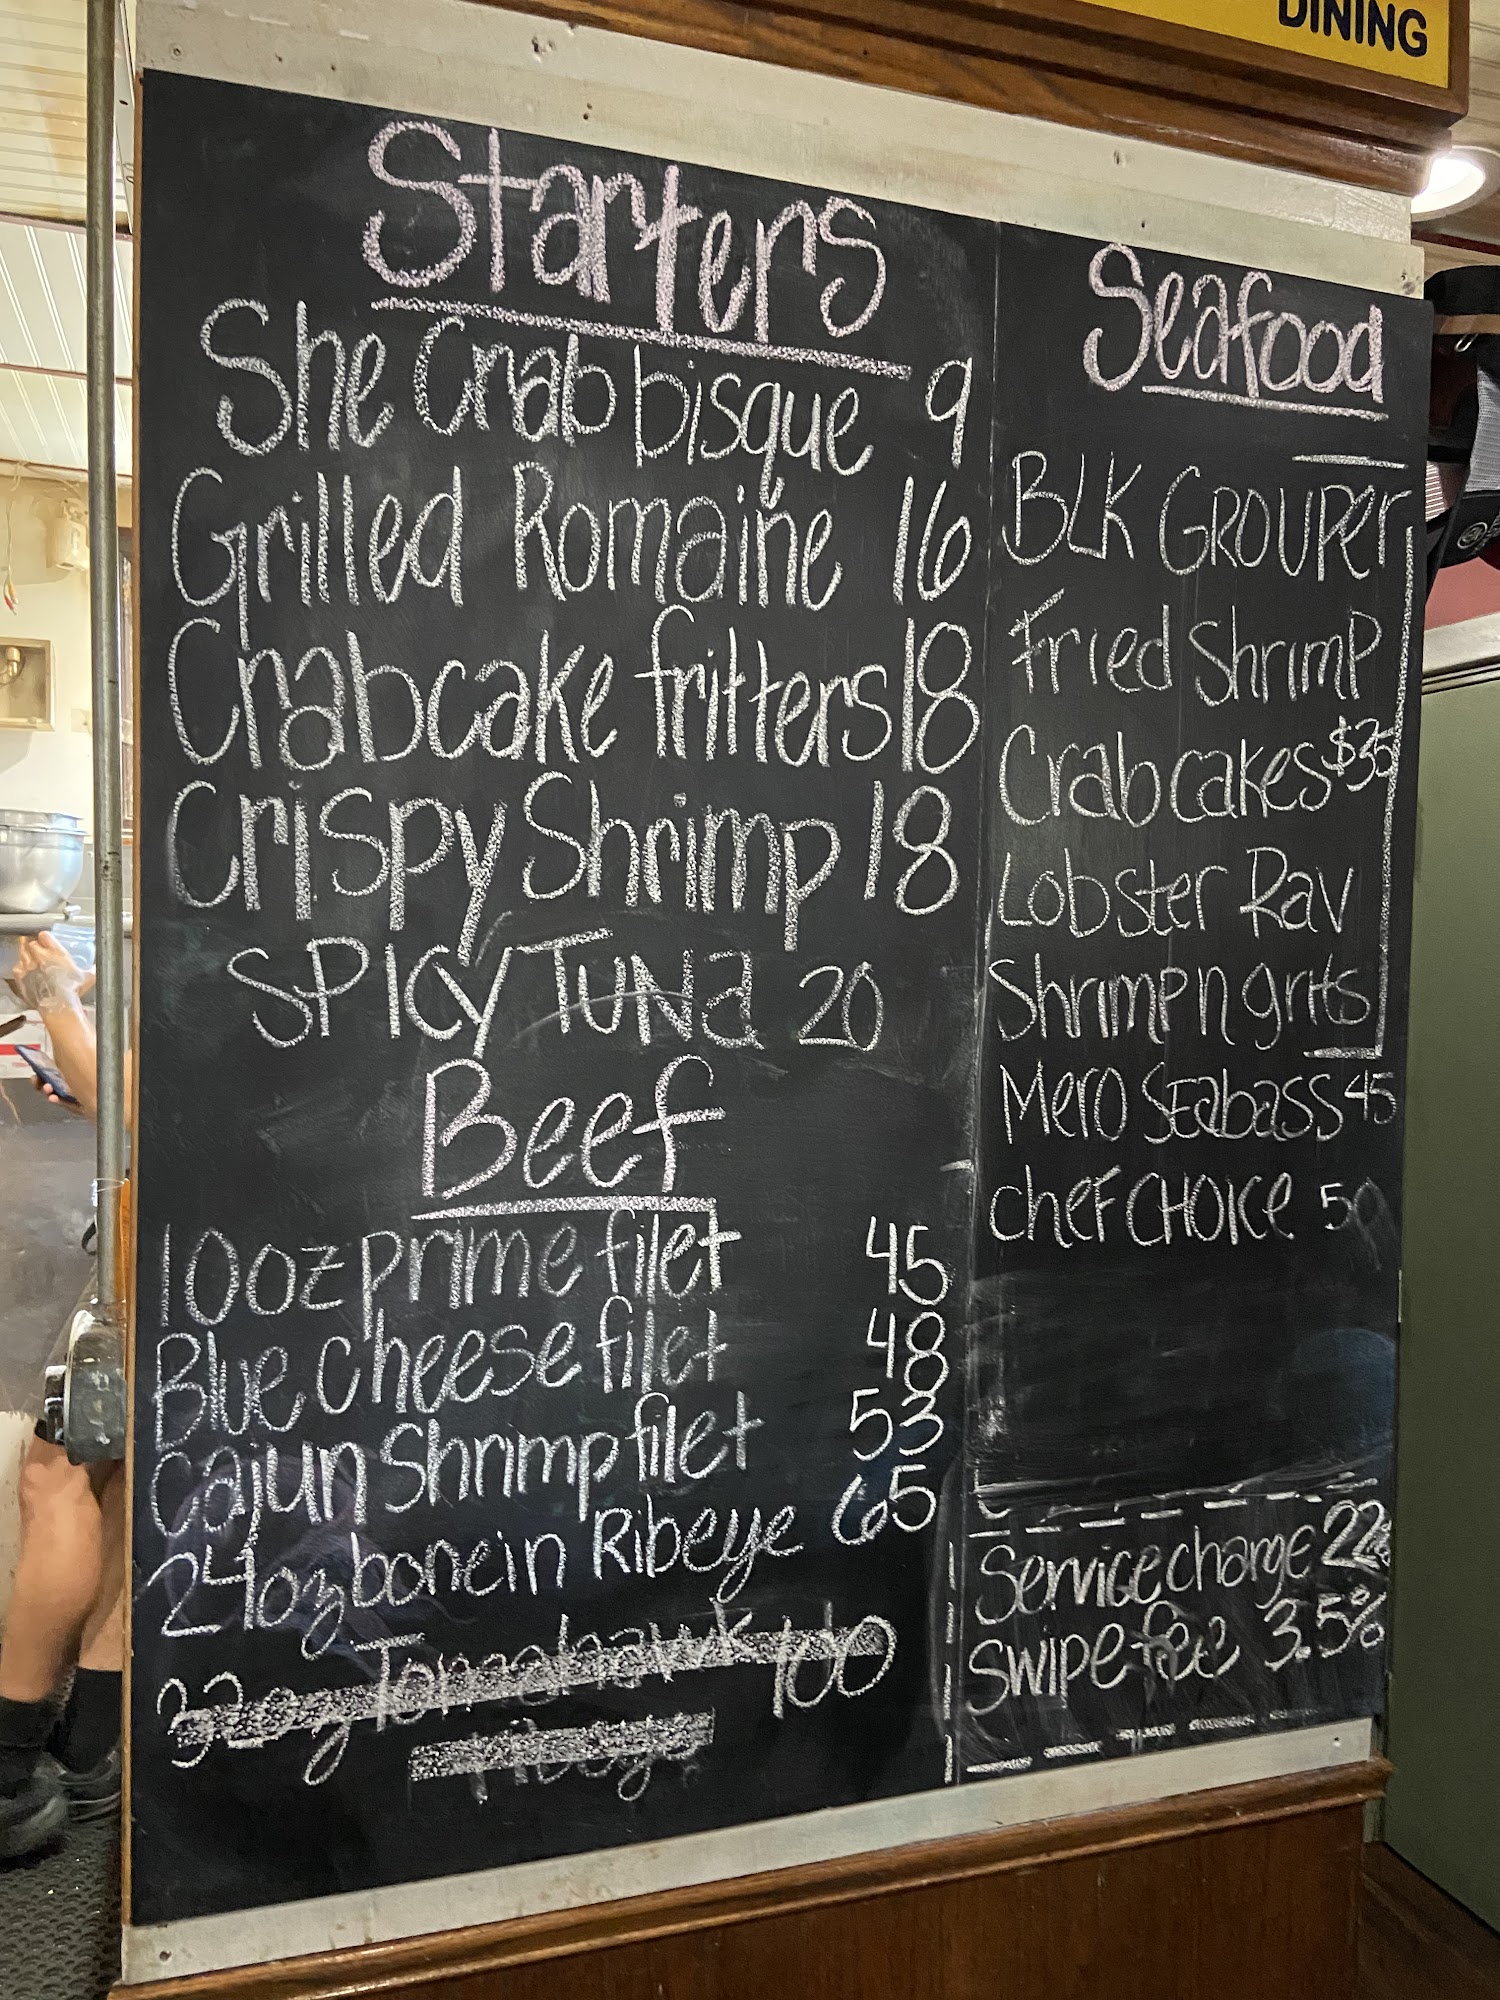 DINING
Starters
She Crab bisque 9
Grilled Romaine 16
Crabcake fritters 18
Crispy Shrimp 18
SPICY TUNA 20
Beef
10oz prime filet 45
Blue cheese filet 48
Cajun Shrimp filet 53
24oz bone in Ribeye 65
32oz Tomahawk 100
Ribeye
Seafood
BLK GROUPer
Fried Shrimp
Crab cakes $35
Lobster Rav
Shrimp n grits
Mero Seabass 45
chef CHOICe 50
Service charge 22%
SWIPE fee 3.5%